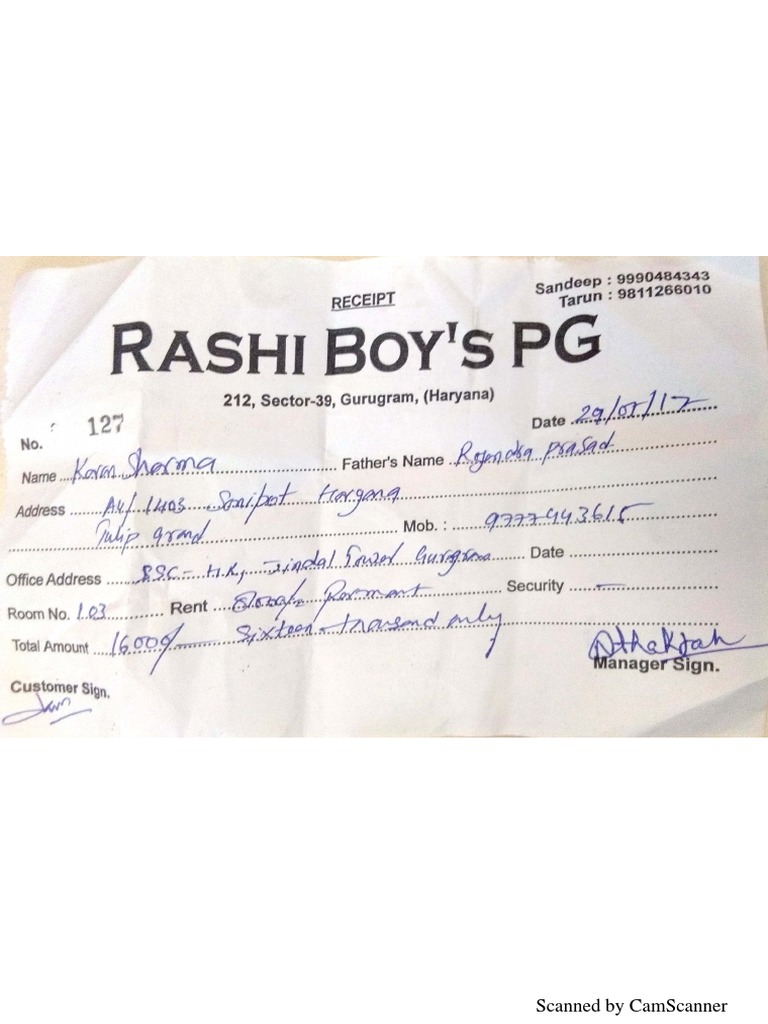 RECEIPT
Sandeep : 9990484343
Tarun : 9811266010
RASHI BOY'S PG
212, Sector-39, Gurugram, (Haryana)
No. 127
Date 29/05/17
Name Karan Sharma Father's Name Rajendra Prasad
Address A4/1403 Sonipat Haryana
Tulip grand Mob. : 9777443615
Office Address SSC-HR, Jindal Tower Gurgram Date
Room No. 103 Rent Security —
Total Amount 16000/— Sixteen thousand only
Manager Sign.
Customer Sign.
Scanned by CamScanner